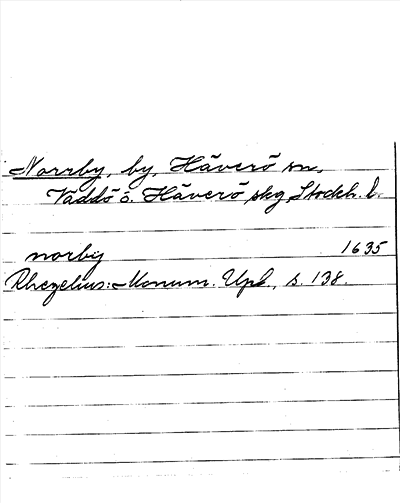 Norrby, by, Häverö sn,
Väddö o. Häverö skg Stockh. l.
norby 1635
Rhezelius: Monum. Upl., s. 138.